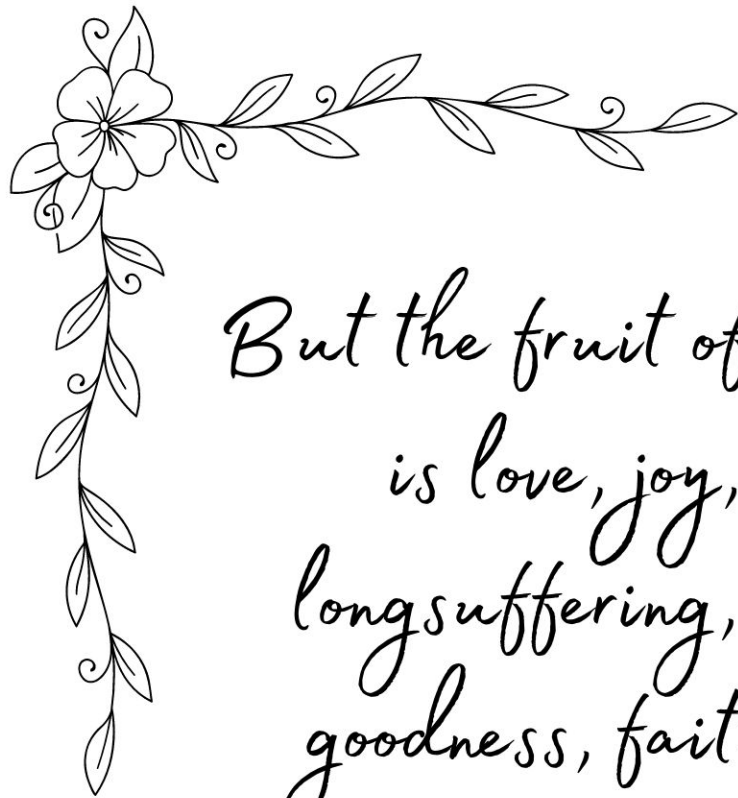 But the fruit of
is love, joy,
longsuffering,
goodness,